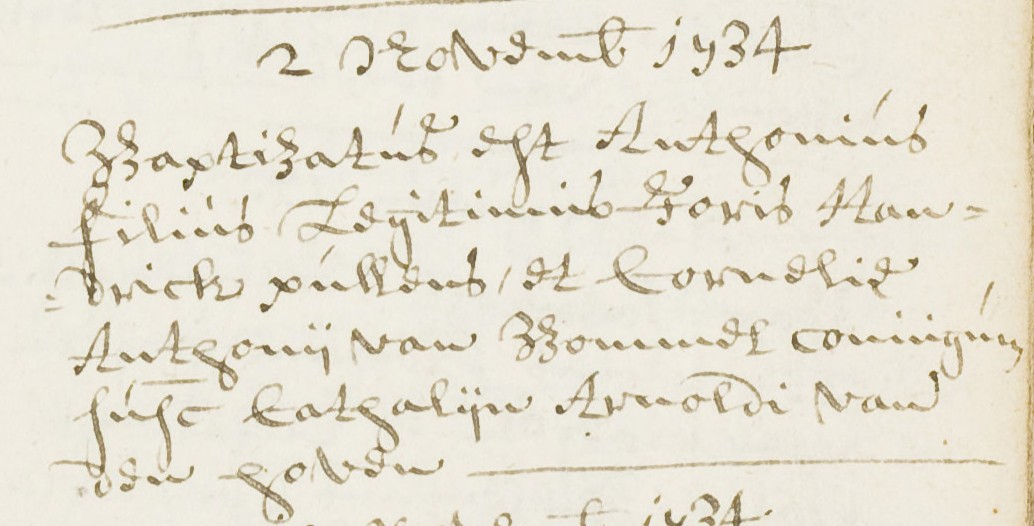 2 Novemb 1734
Baptizatus est Anthonius
filius Legitimus Joris Han=
=drick pullens, et Cornelie
Anthonij van Bommel coniugum
susc Cathalijn Arnoldi van
den hoven
1734